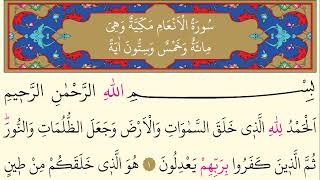 سُورَةُ الْاَنْعَامِ مَكِّيَّةٌ وَهِيَ
مِائَةٌ وَخَمْسٌ وَسِتُّونَ اٰيَةً
بِسْــــمِ اللّٰهِ الرَّحْمٰنِ الرَّحٖيمِ
اَلْحَمْدُ لِلّٰهِ الَّذٖى خَلَقَ السَّمٰوَاتِ وَالْاَرْضَ وَجَعَلَ الظُّلُمَاتِ وَالنُّورَ ؕ
ثُمَّ الَّذٖينَ كَفَرُوا بِرَبِّهِمْ يَعْدِلُونَ ﴿١﴾ هُوَ الَّذٖى خَلَقَكُمْ مِنْ طٖينٍ